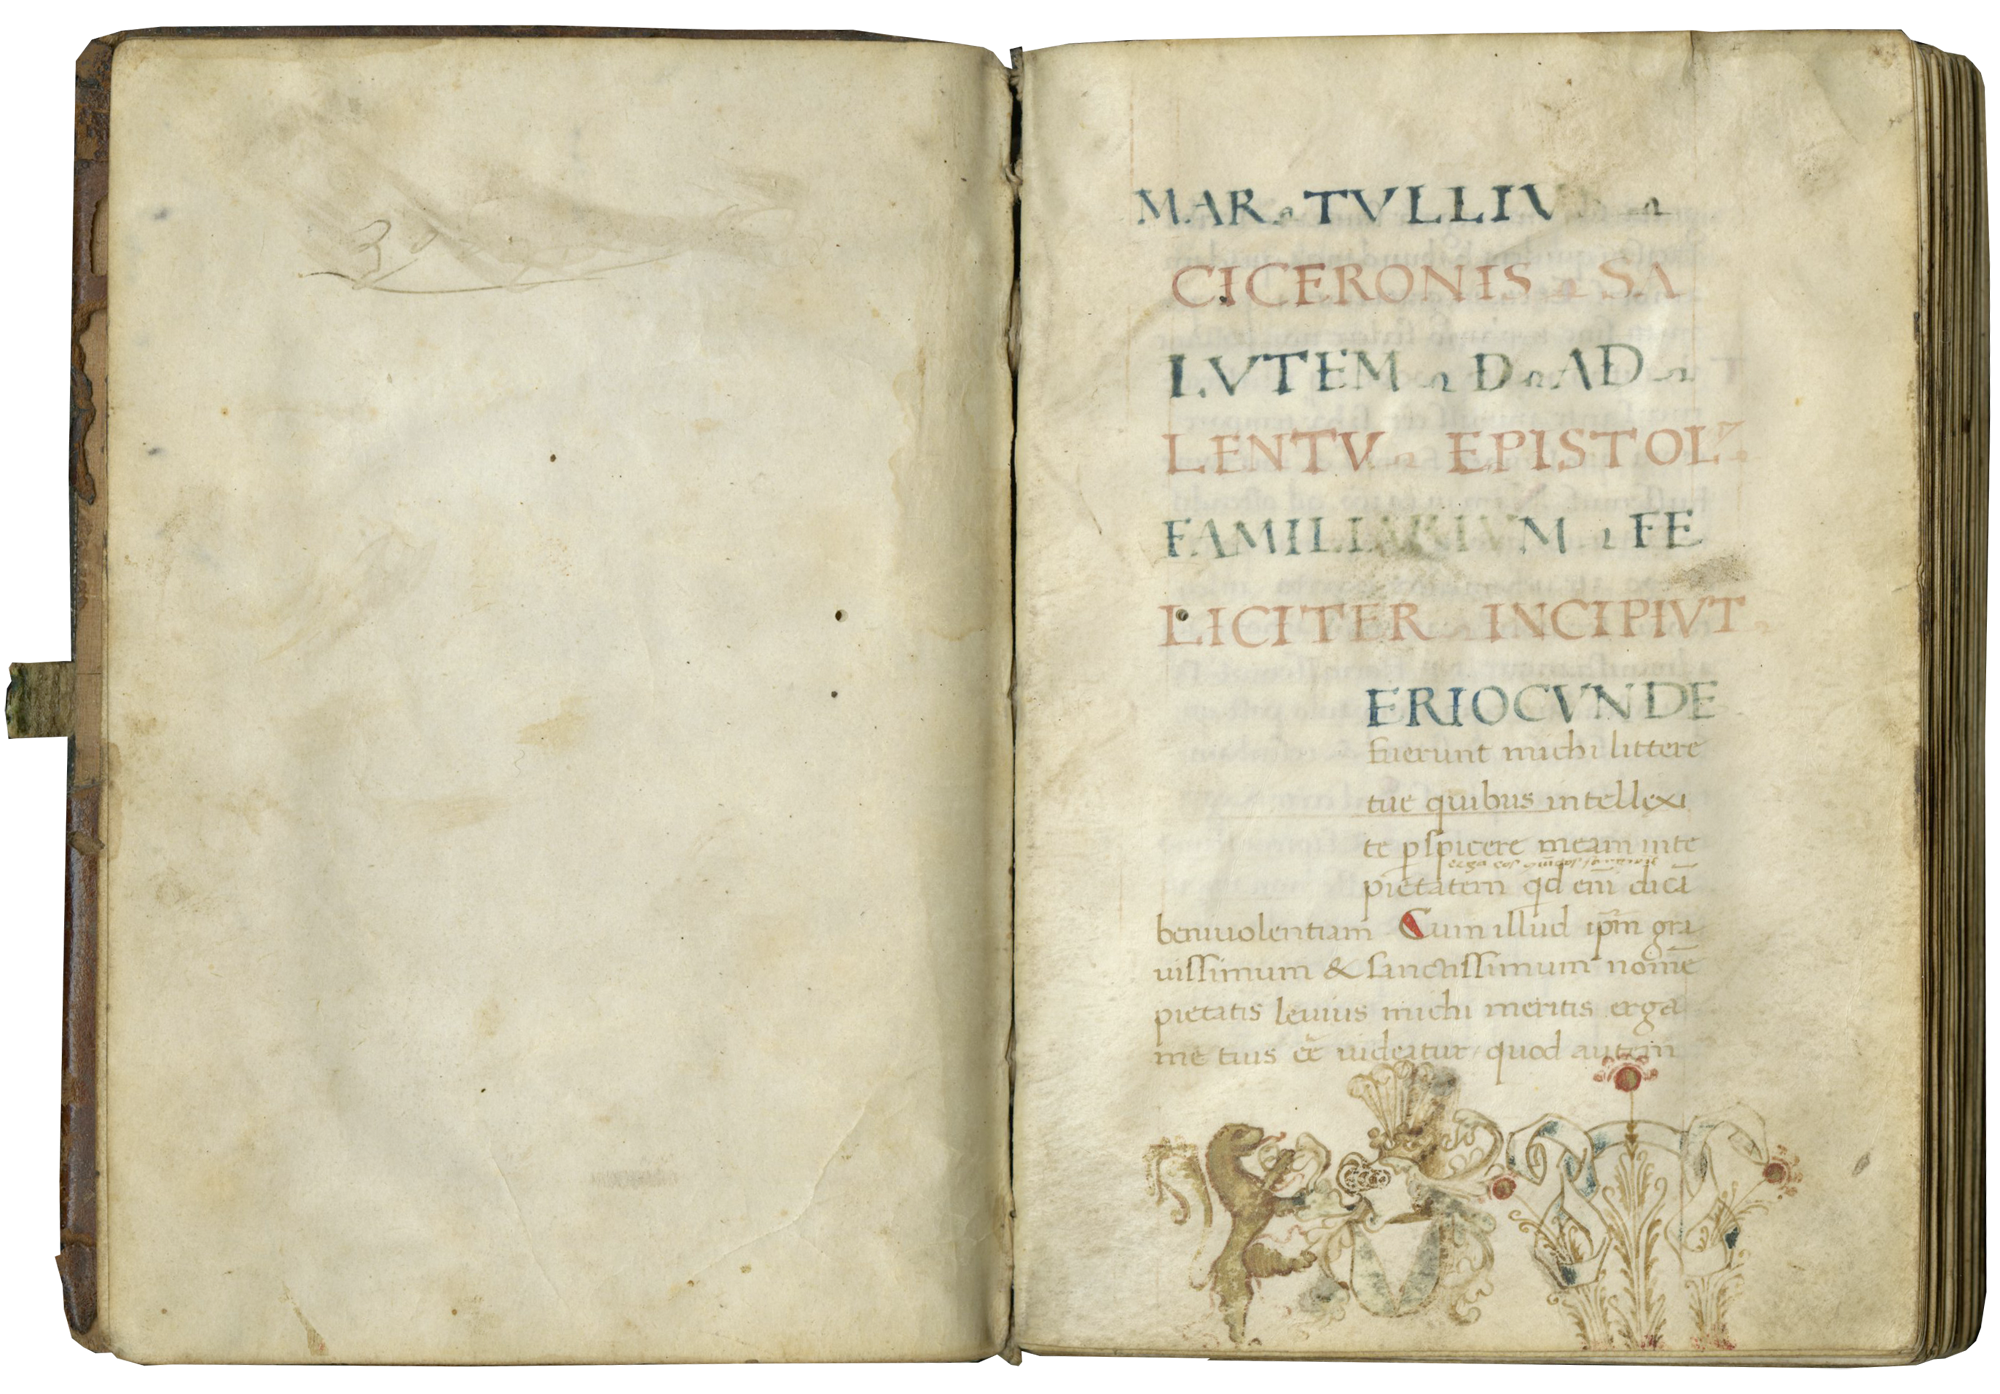 MAR TVLLIV
CICERONIS SA
LVTEM D AD
LENTV EPISTOL
FAMILIARIVM FE
LICITER INCIPIVT
ERIOCVNDE
fuerunt michi littere
tue quibus intellexi
te ꝑspicere meam inte
erga eos
pietatem qd em̄ dicā
beniuolentiam Cum illud ip̄m gra
uissimum & sanctissimum nom̄e
pietatis leuius michi meritis erga
me tuis eē uideatur quod autem